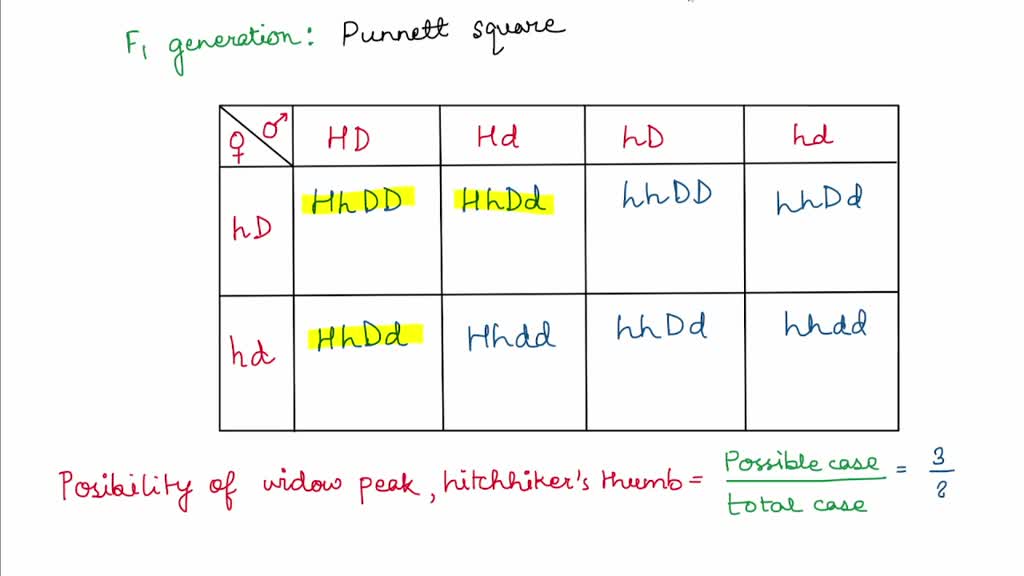 F1 generation: Punnett square
♀ ♂ HD Hd hD hd
hD HhDD HhDd hhDD hhDd
hd HhDd Hhdd hhDd hhdd
Posibility of widow peak, hitchhiker's thumb = Possible case / total case = 3 / 8